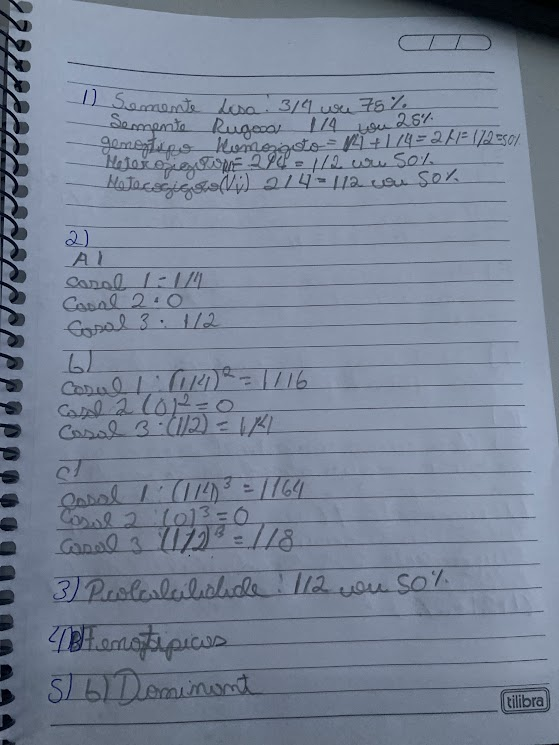 1) Semente Lisa: 3/4 ou 75%
Semente Rugosa 1/4 ou 25%
genótipo Homozigoto = 1/4 + 1/4 = 2/4 = 1/2 = 50%
Heterozigoto = 2/4 = 1/2 ou 50%
Heterozigoto (Vv) 2/4 = 1/2 ou 50%
2)
A)
Casal 1 = 1/4
Casal 2 : 0
Casal 3 : 1/2
b)
Casal 1 : (1/4)² = 1/16
Casal 2 (0)² = 0
Casal 3 : (1/2) = 1/4
c)
Casal 1 : (1/4)³ = 1/64
Casal 2 : (0)³ = 0
Casal 3 (1/2)³ = 1/8
3) Probabilidade : 1/2 ou 50%
4) B) Fenotípicos
5) b) Dominant
tilibra